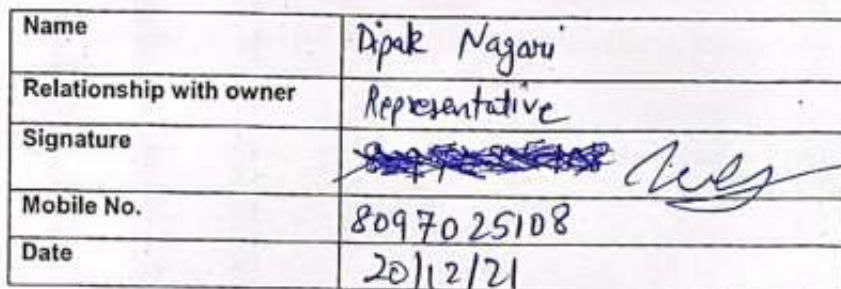 Name Dipak Nagari
Relationship with owner Representative
Signature
Mobile No. 8097025108
Date 20/12/21